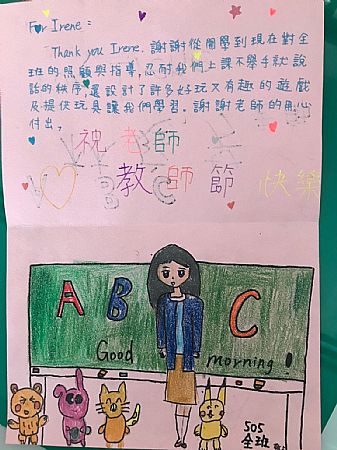 For Irene:
Thank you Irene. 謝謝從開學到現在對全
班的照顧與指導,忍耐我們上課不舉手就說
話的秩序,還設計了許多好玩又有趣的遊戲
及提供玩具讓我們學習。謝謝老師的用心
付出,
祝老師
教師節快樂
A B C
Good morning!
505
全班